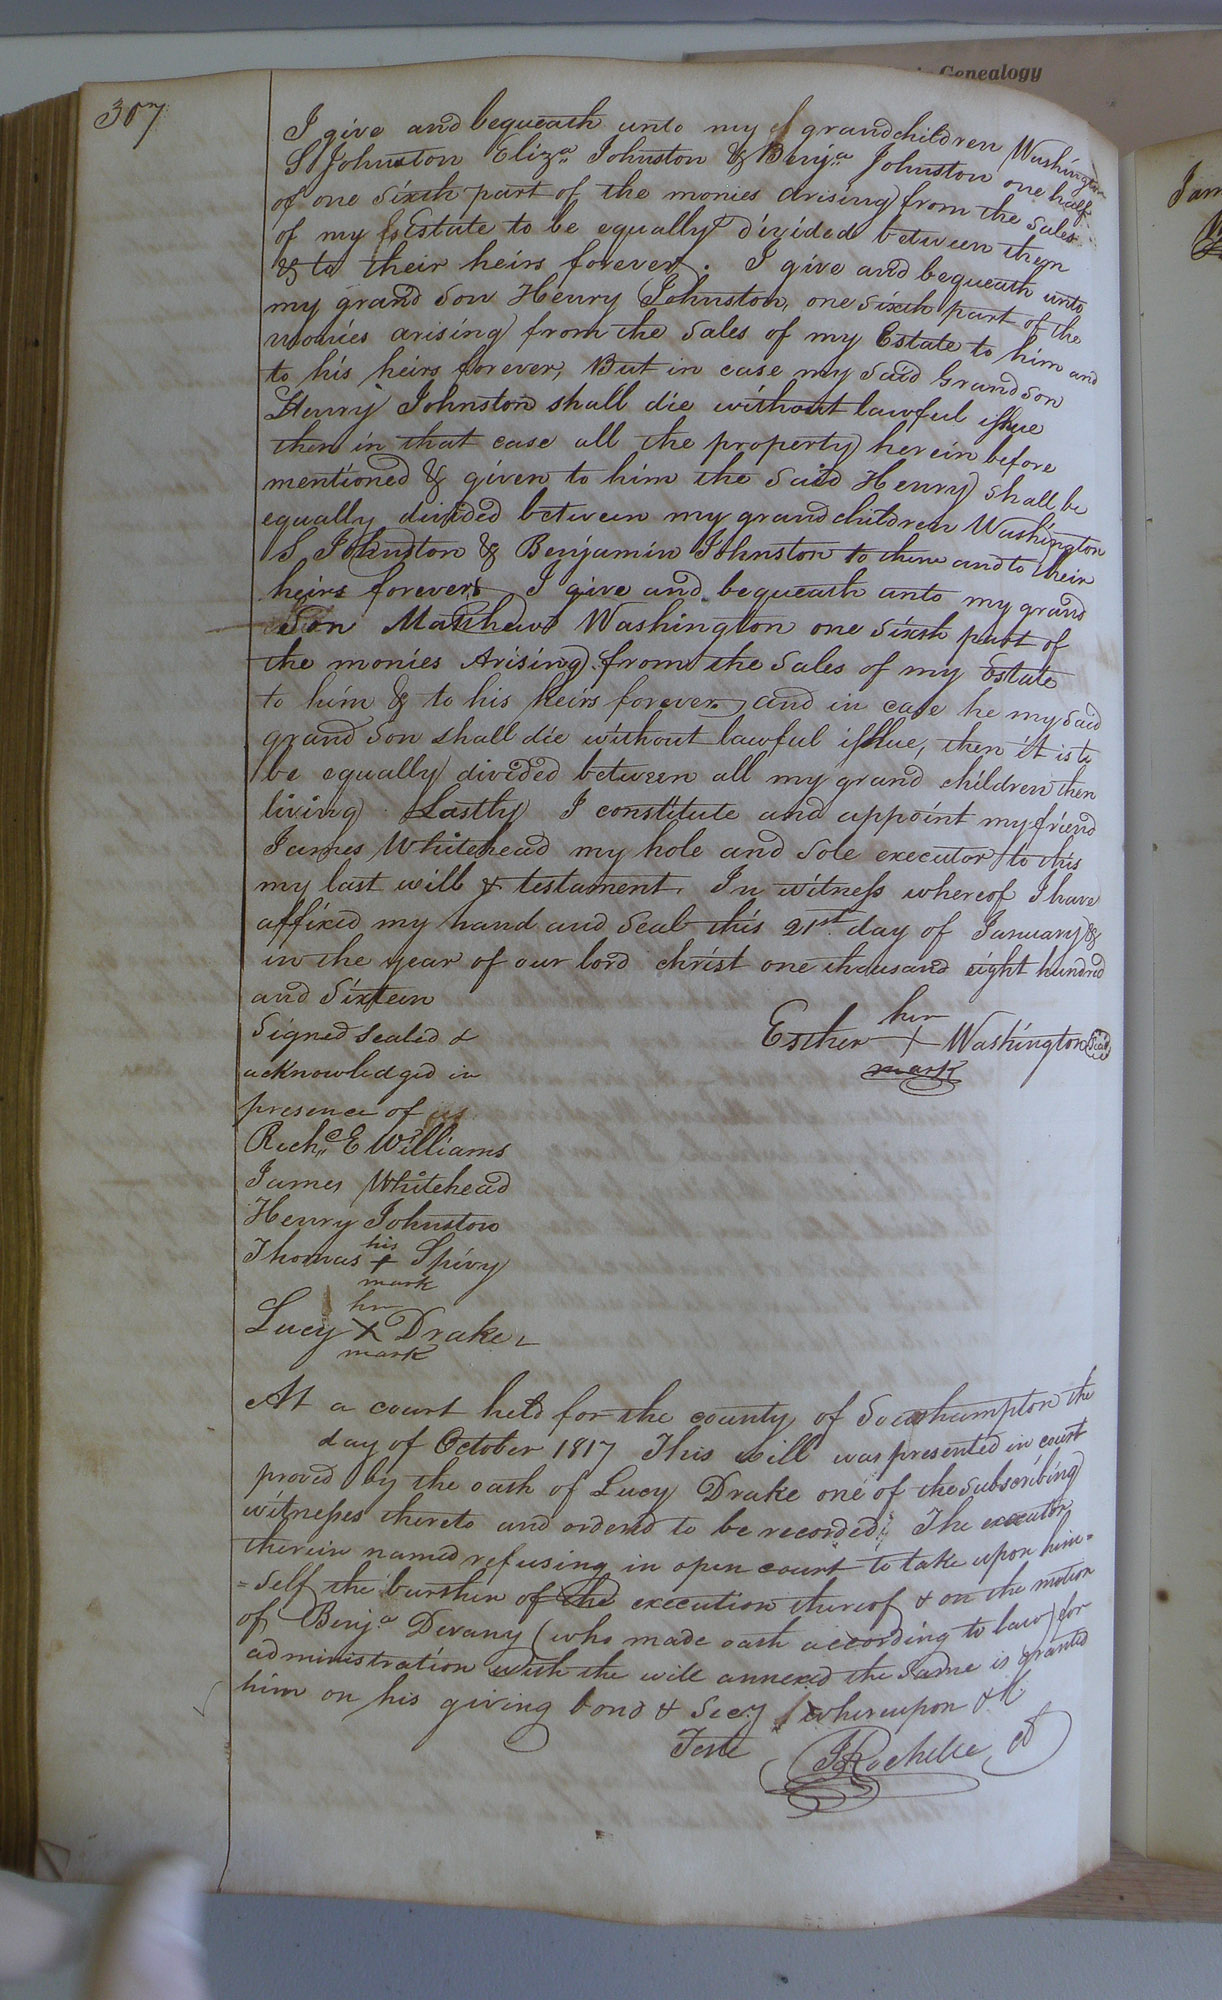 in Genealogy
307
I give and bequeath unto my grandchildren Washington
S Johnston Eliza Johnston & Benja Johnston one half
of one sixth part of the monies arising from the sales
of my Estate to be equally divided between them
& to their heirs forever. I give and bequeath unto
my grand son Henry Johnston, one sixth part of the
monies arising from the sales of my Estate to him and
to his heirs forever, But in case my said Grand son
Henry Johnston shall die without lawful issue
then in that case all the property herein before
mentioned & given to him the said Henry shall be
equally divided between my grandchildren Washington
S Johnston & Benjamin Johnston to them and to their
heirs forever I give and bequeath unto my grand
Son Matthew Washington one sixth part of
the monies Arising from the sales of my Estate
to him & to his heirs forever and in case he my said
grand son shall die without lawful issue, then it is to
be equally divided between all my grand children then
living Lastly I constitute and appoint my friend
James Whitehead my hole and sole executor to this
my last will & testament. In witness whereof I have
affixed my hand and seal this 21st day of January &
in the year of our lord christ one thousand eight hundred
and Sixteen
Signed sealed &
acknowledged in
presence of us
Esther her + Washington Seal
mark
Richd E Williams
James Whitehead
Henry Johnston
Thomas his + Spivy
mark
Lucy her X Drake
mark
At a court held for the county of Southampton the
day of October 1817 This will was presented in court
proved by the oath of Lucy Drake one of the subscribing
witnesses thereto and ordered to be recorded; The executor
therein named refusing in open court to take upon him=
=self the burthen of the execution thereof & on the motion
of Benja Devany (who made oath according to law) for
administration with the will annexed the same is granted
him on his giving bond & Secy whereupon &c
Teste JRochelle ct
Jam